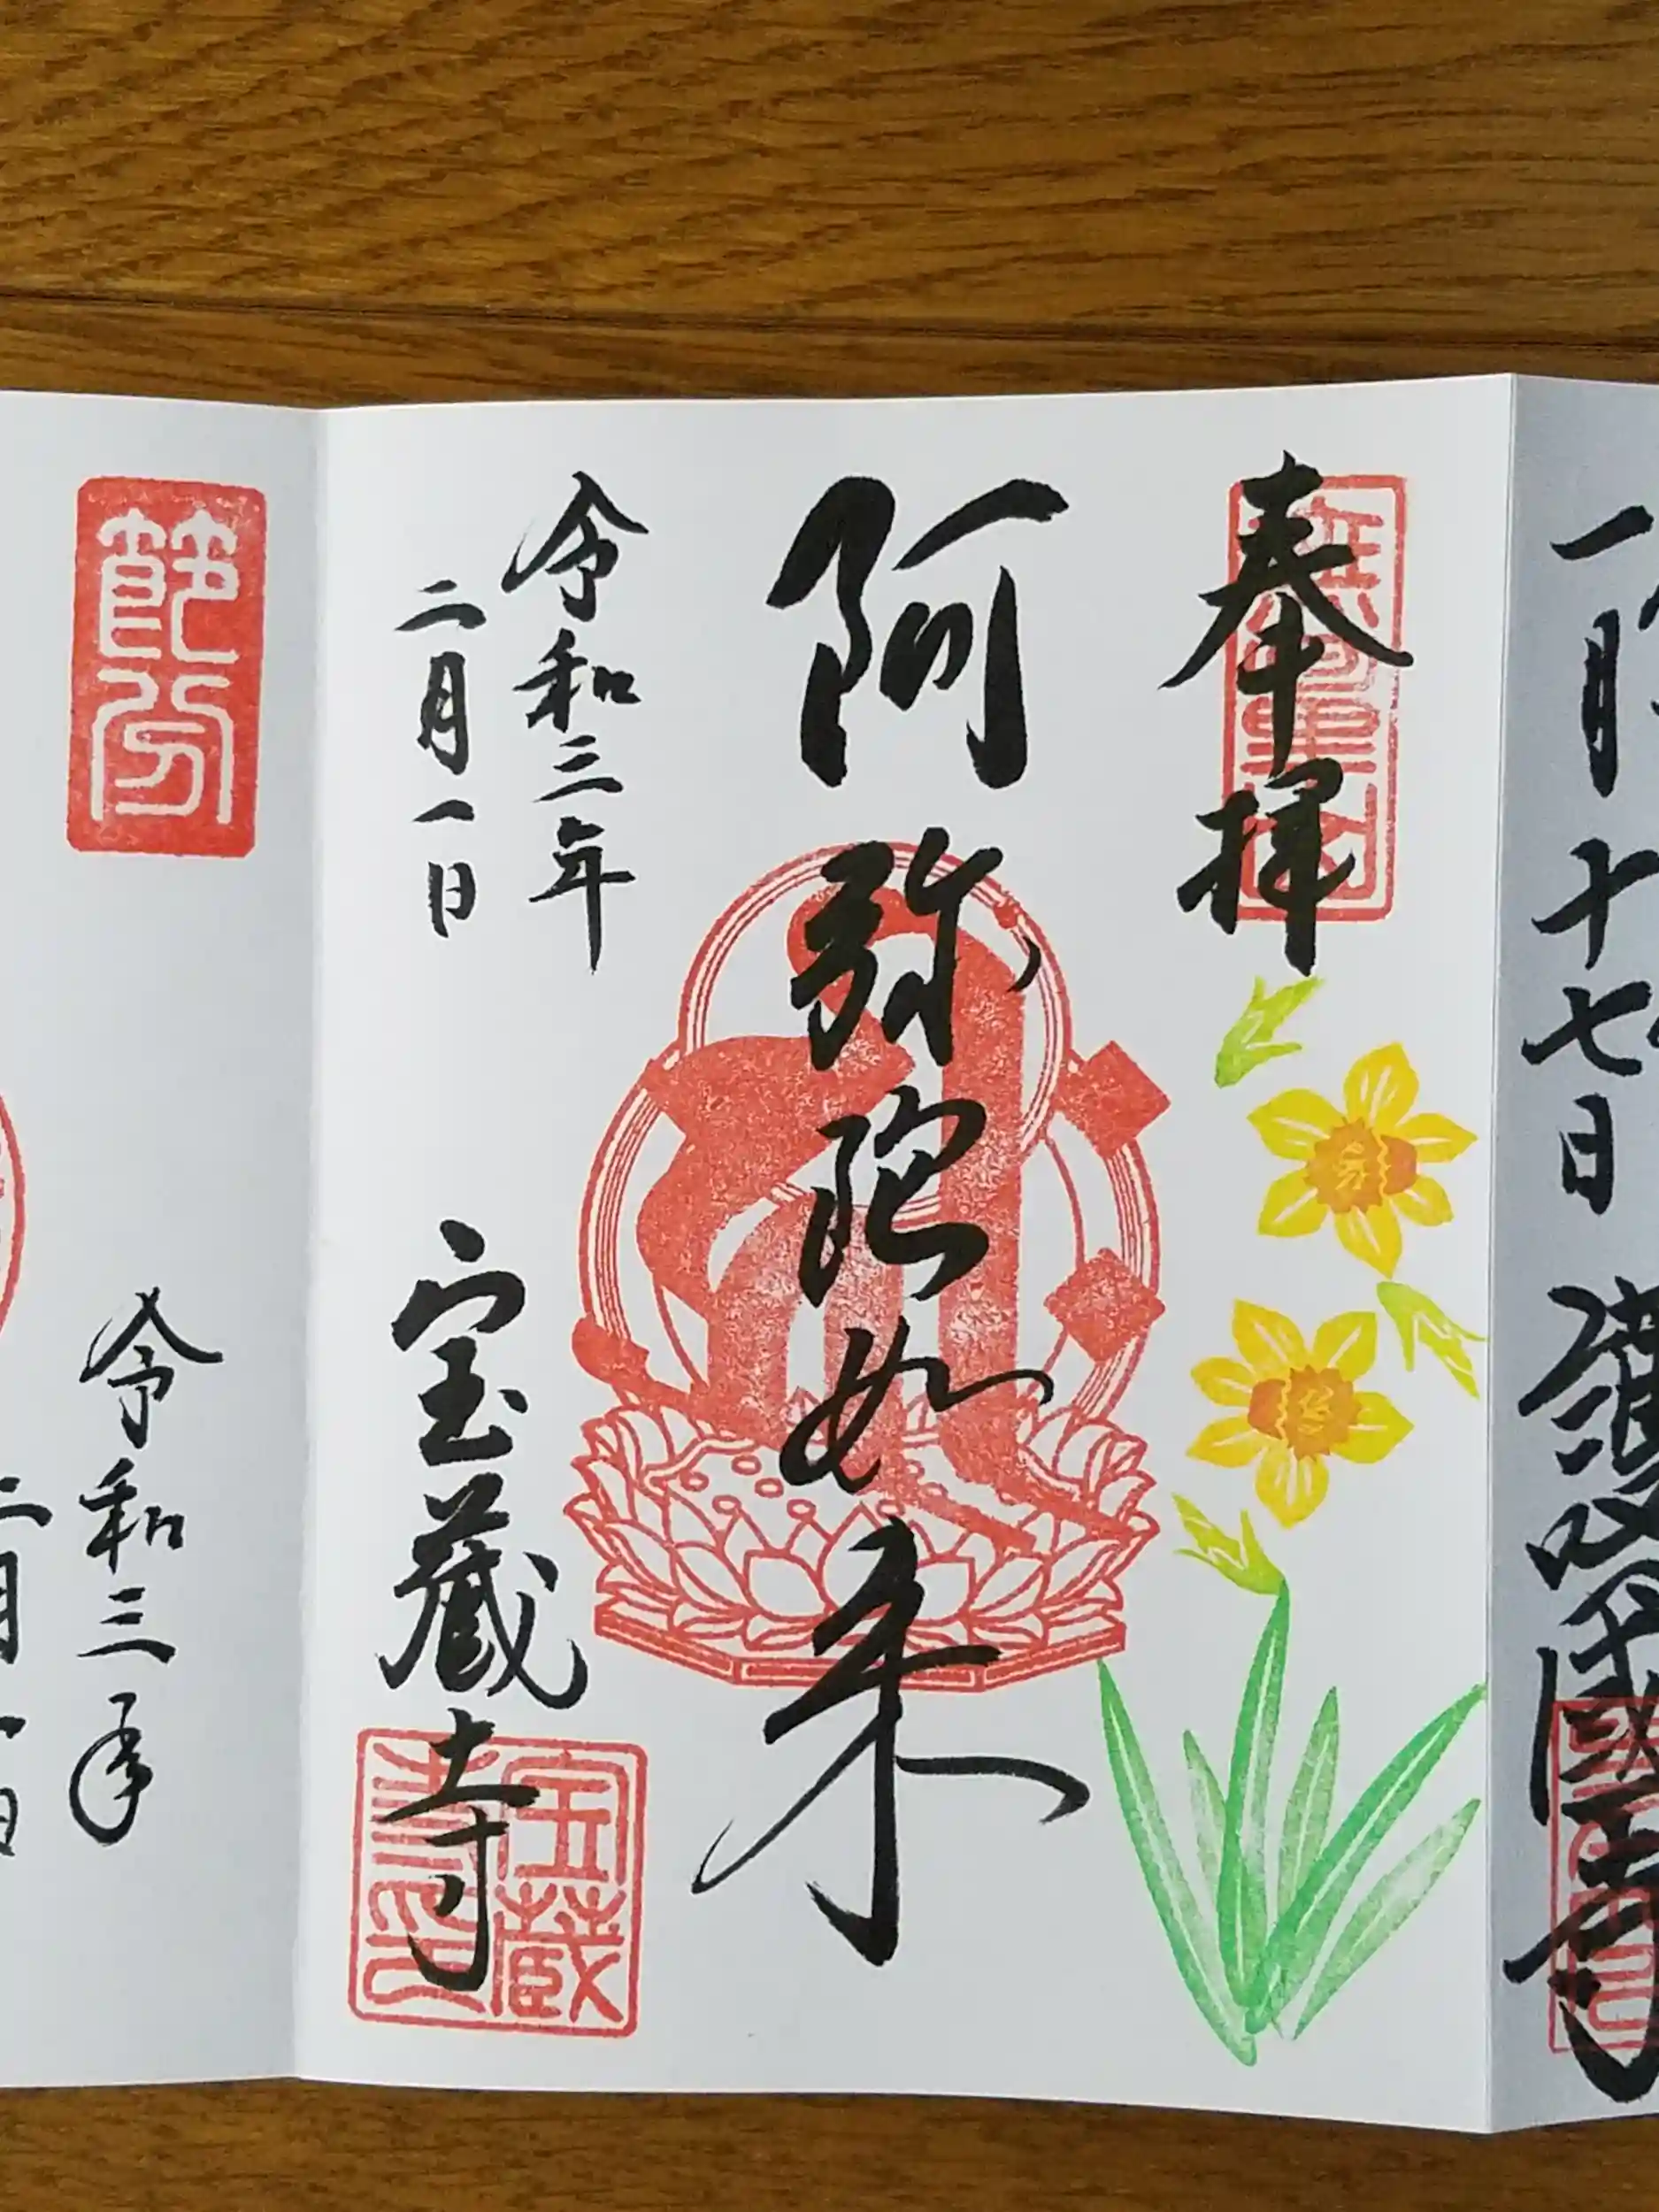 一月十七日
奉拝
阿弥陀如来
令和三年
二月一日
宝蔵寺
宝蔵
寺印
節分
令和三年
二月一日